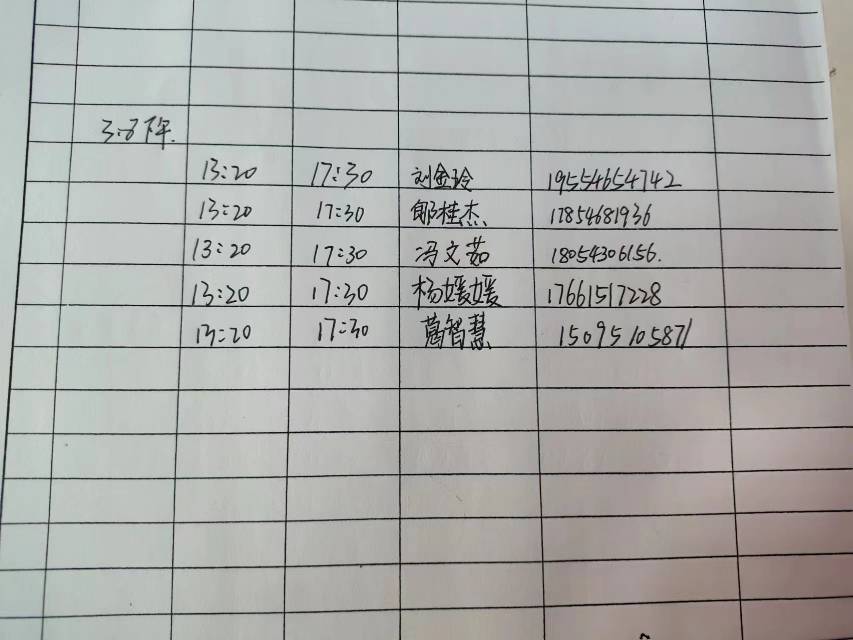 3.8下午.
13:20 17:30 刘金玲 19554654742
13:20 17:30 郇桂杰 17854681936
13:20 17:30 冯文茹 18054306156.
13:20 17:30 杨媛媛 17661517228
13:20 17:30 葛智慧 15095105871